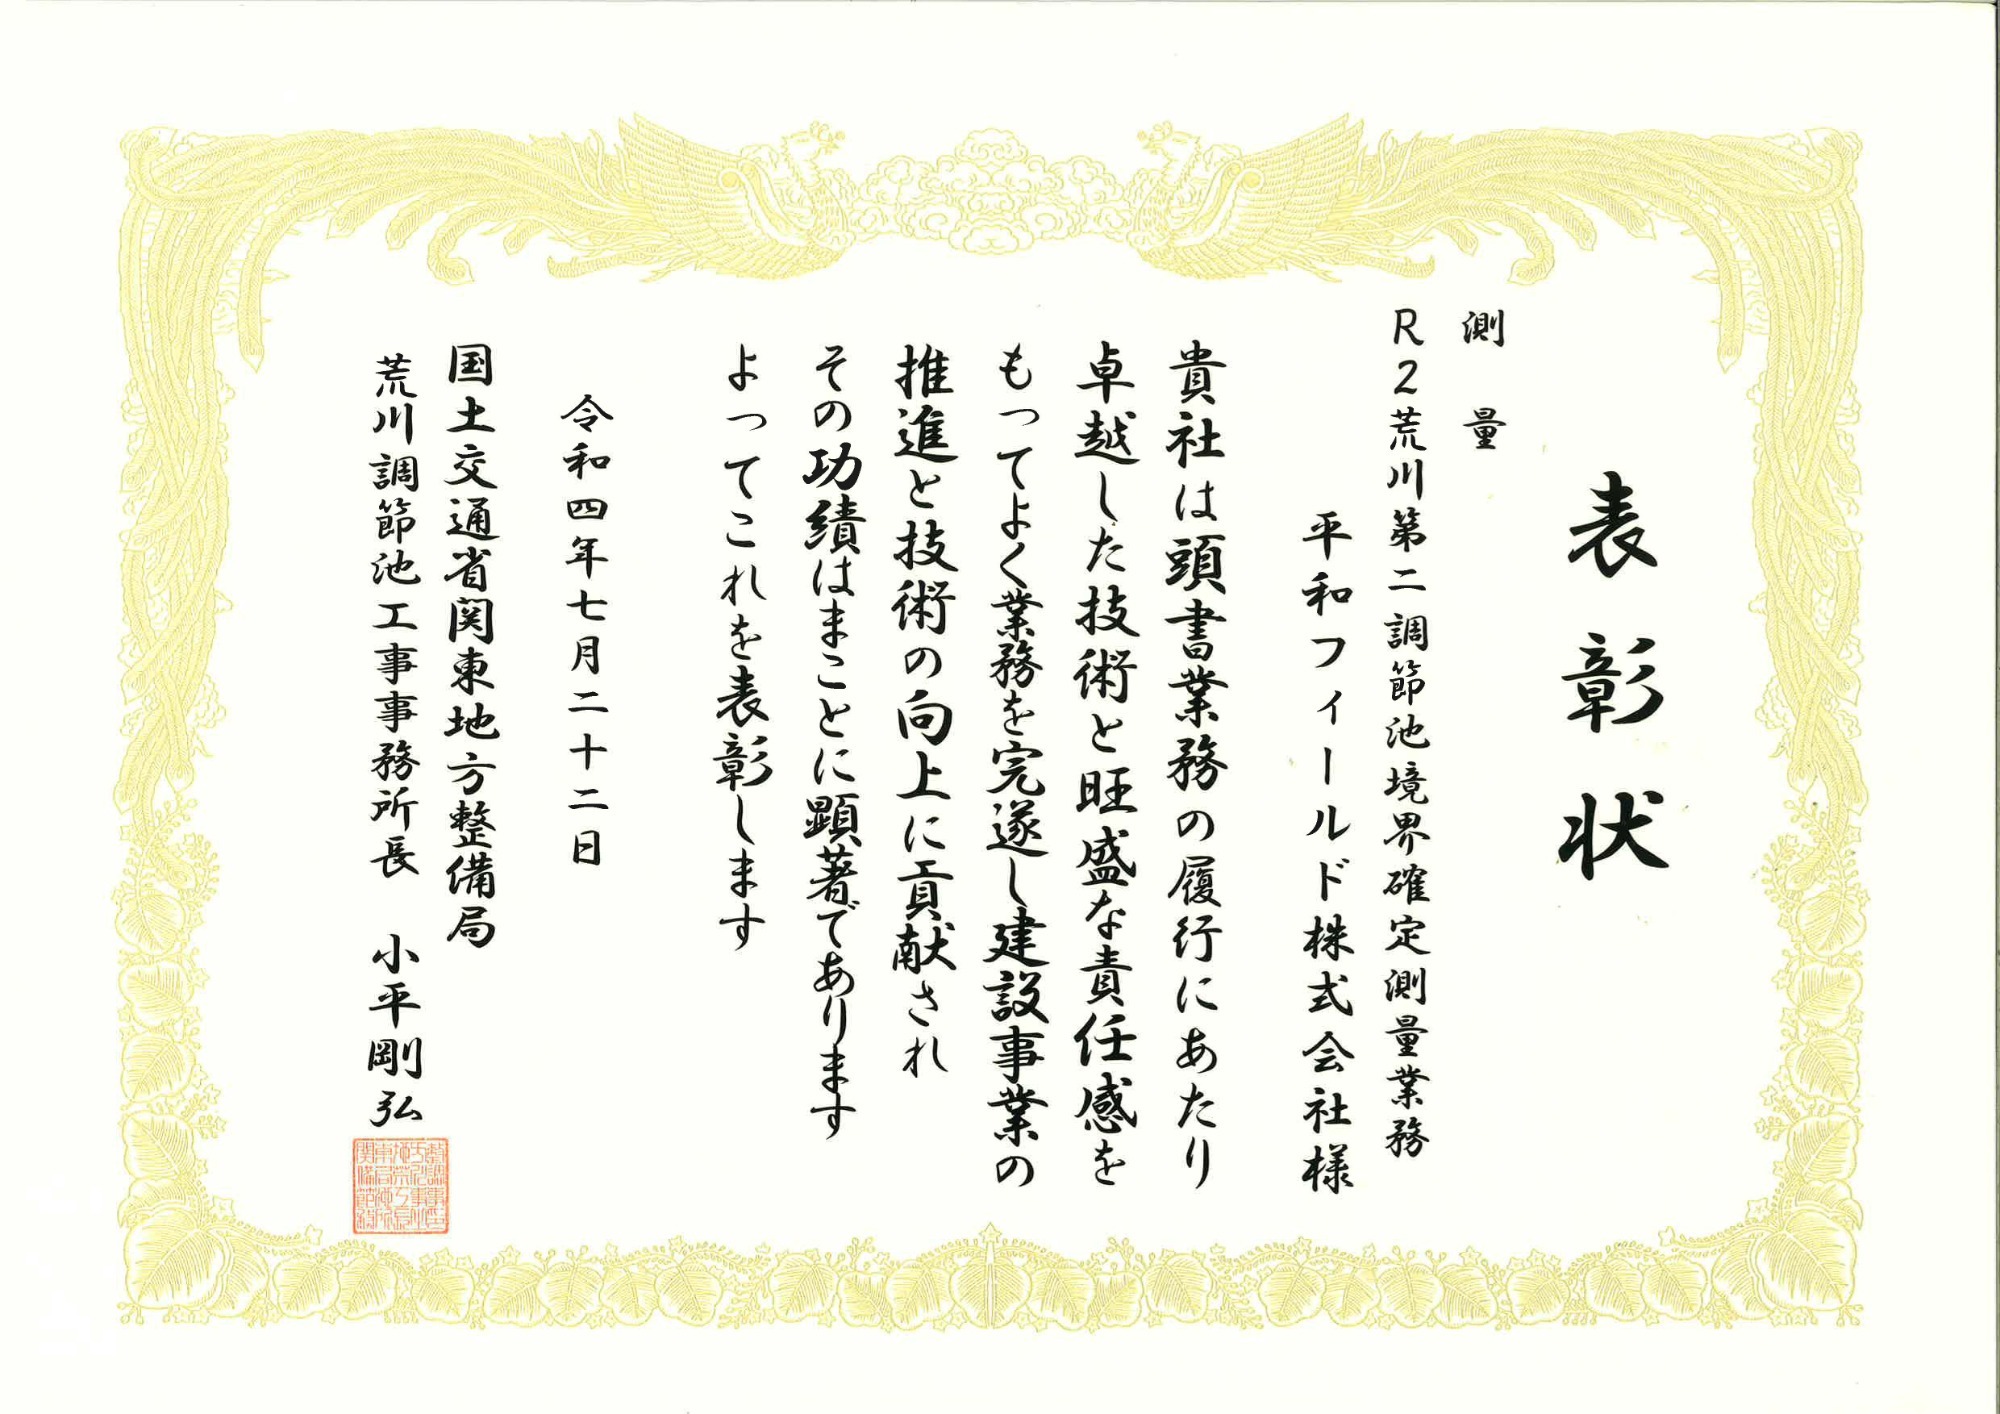 表彰状
測量
R2荒川第二調節池境界確定測量業務
平和フィールド株式会社様
貴社は頭書業務の履行にあたり
卓越した技術と旺盛な責任感を
もってよく業務を完遂し建設事業の
推進と技術の向上に貢献され
その功績はまことに顕著であります
よってこれを表彰します
令和四年七月二十二日
国土交通省関東地方整備局
荒川調節池工事事務所長 小平剛弘